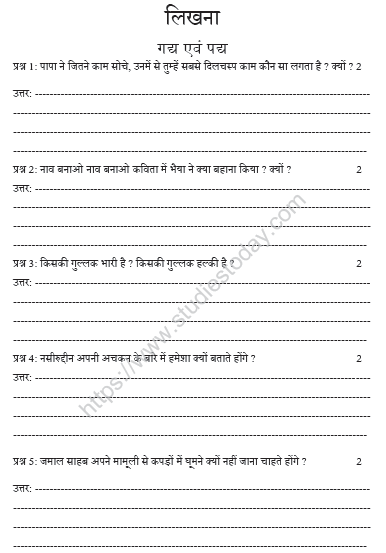 लिखना
गद्य एवं पद्य
प्रश्न 1: पापा ने जितने काम सोचे, उनमें से तुम्हें सबसे दिलचस्प काम कौन सा लगता है ? क्यों ? 2
उत्तर:
प्रश्न 2: नाव बनाओ नाव बनाओ कविता में भैया ने क्या बहाना किया ? क्यों ? 2
उत्तर:
प्रश्न 3: किसकी गुल्लक भारी है ? किसकी गुल्लक हल्की है ? 2
उत्तर:
प्रश्न 4: नसीरुद्दीन अपनी अचकन के बारे में हमेशा क्यों बताते होंगे ? 2
उत्तर:
प्रश्न 5: जमाल साहब अपने मामूली से कपड़ों में घूमने क्यों नहीं जाना चाहते होंगे ? 2
उत्तर:
https://www.studiestoday.com